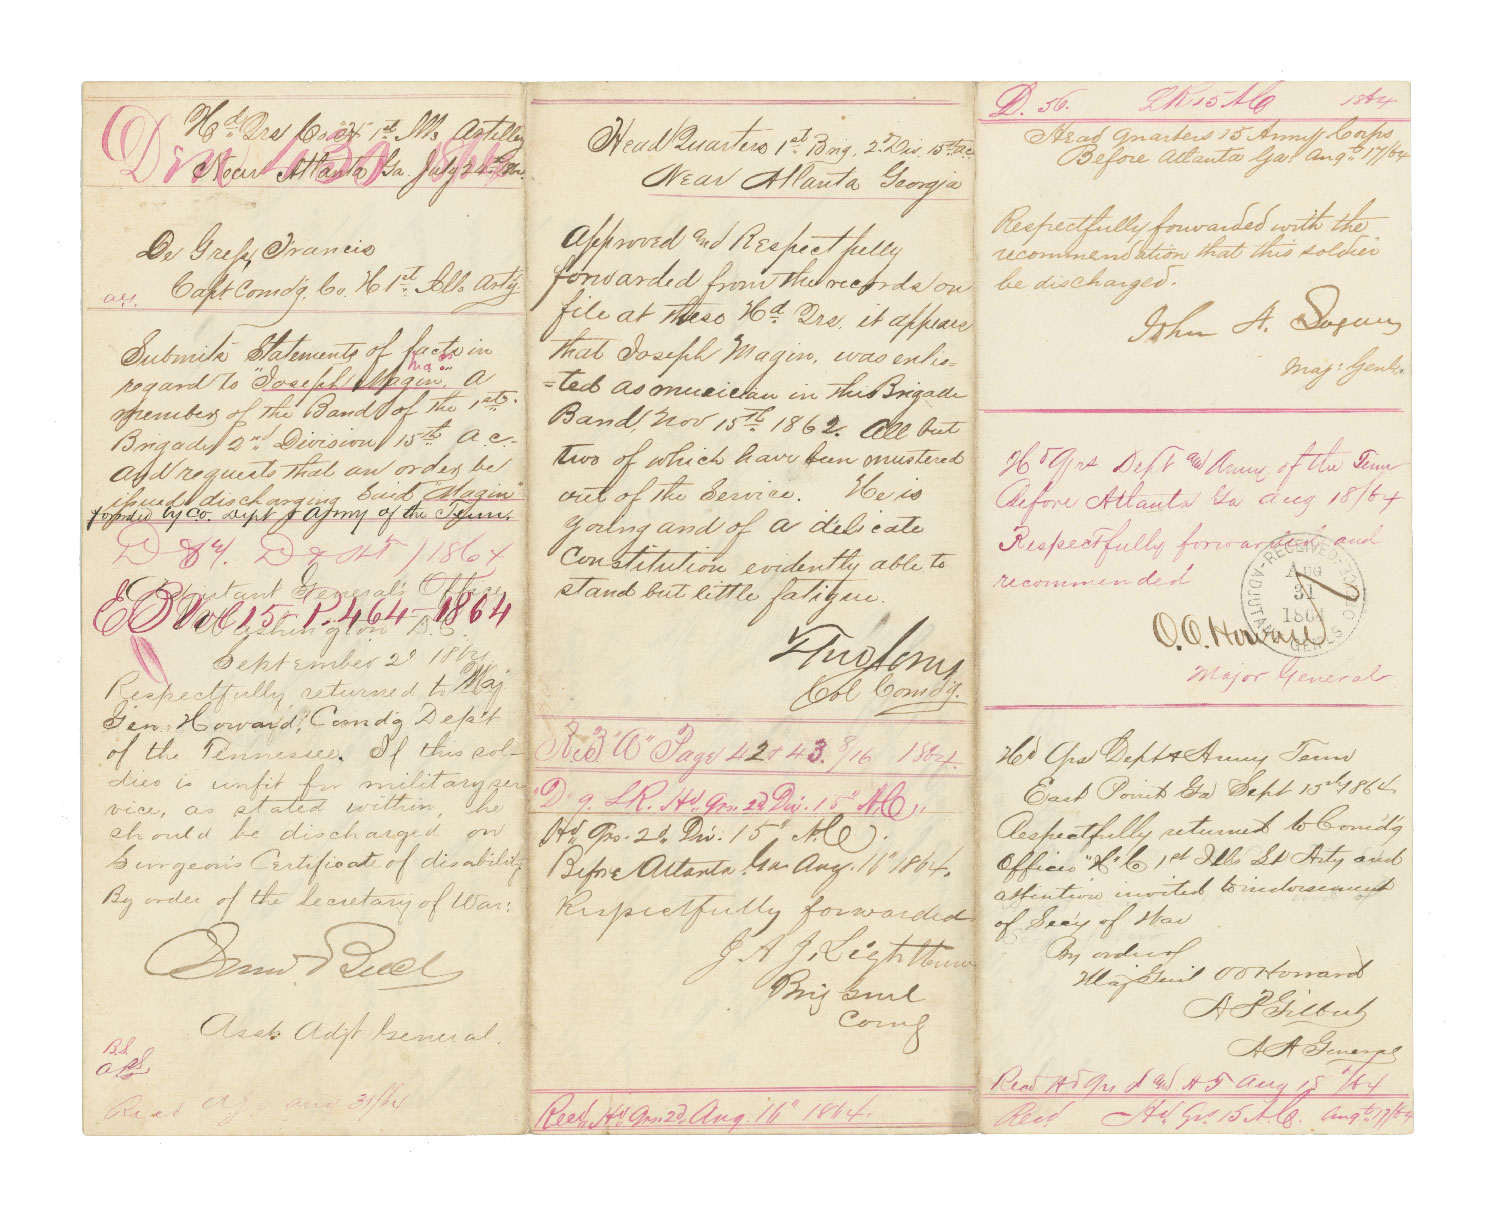 Hd Qrs Co "H" 1st Ills Artillery
Near Atlanta Ga. July 24th /64
De Gress, Francis
Capt Comd'g. Co. H 1st Ills Arty
Submits Statements of facts in
regard to "Joseph Magin, A
member of the Band of the 1st
Brigade 2nd Division 15th A.C.
and requests that an order be
issued discharging Said "Magin"
forwded by Co. Dept & Army of the Tenn.
1864
Adjutant General's Office
EB Vol 15 P. 464 - 1864
Washington D.C.
September 2d 1864
Respectfully returned to Maj
Gen. Howard, Comd'g Dep't
of the Tennessee. If this sol-
dier is unfit for military ser
vice, as stated within, he
should be discharged on
Surgeon's Certificate of disability.
By order of the Secretary of War:
Asst Adjt General.
Recd A.G.O. Aug 31/64
Head Quarters 1st Brig. 2d Div. 15th A.C.
Near Atlanta Georgia
Approved and Respectfully
forwarded from the records on
file at these Hd Qrs. it appears
that Joseph Magin, was enlis-
-ted as musician in this Brigade
Band, Nov 15th 1862. All but
two of which have been mustered
out of the Service. He is
Young and of A delicate
Constitution evidently able to
stand but little fatigue.
Col Comd'g.
Rec'd "A" Page 42 & 43. 8/16 1864.
"D" 9. L.R. Hd. Qrs. 2d Div. 15" A.C.,,
Hd. Qrs. 2d. Div. 15" A.C.
Before Atlanta. Ga. Aug. 16" 1864.
Respectfully forwarded
J. A. J. Lightburn
Brig Genl
Comg
Recd. Hd Qrs. 2d. Aug. 16" 1864.
D. 56. LR 15 AC 1864
Head quarters 15 Army Corps
Before Atlanta Ga. Augt 17/64
Respectfully forwarded with the
recommendation that this soldier
be discharged.
John A. Logan
Maj: Genl.
Hd Qrs Dept and Army of the Tenn
Before Atlanta Ga Aug 18/64
Respectfully forwarded and
recommended
RECEIVED
AUG
31
1864
ADJUTANT GENL'S OFFICE
O. O. Howard
Major General
Hd Qrs Dept & Army Tenn
East Point Ga Sept 15th 1864
Respectfully returned to Comd'g
Officer "H" C 1st Ills Lt Arty and
attention invited to indorsement
of Sec'y of War
By order of
Maj Genl O O Howard
A A General
Recd Hd Qrs D and A T Aug 18" /64
Recd. Hd. Qrs. 15 A.C. Augt 17/64